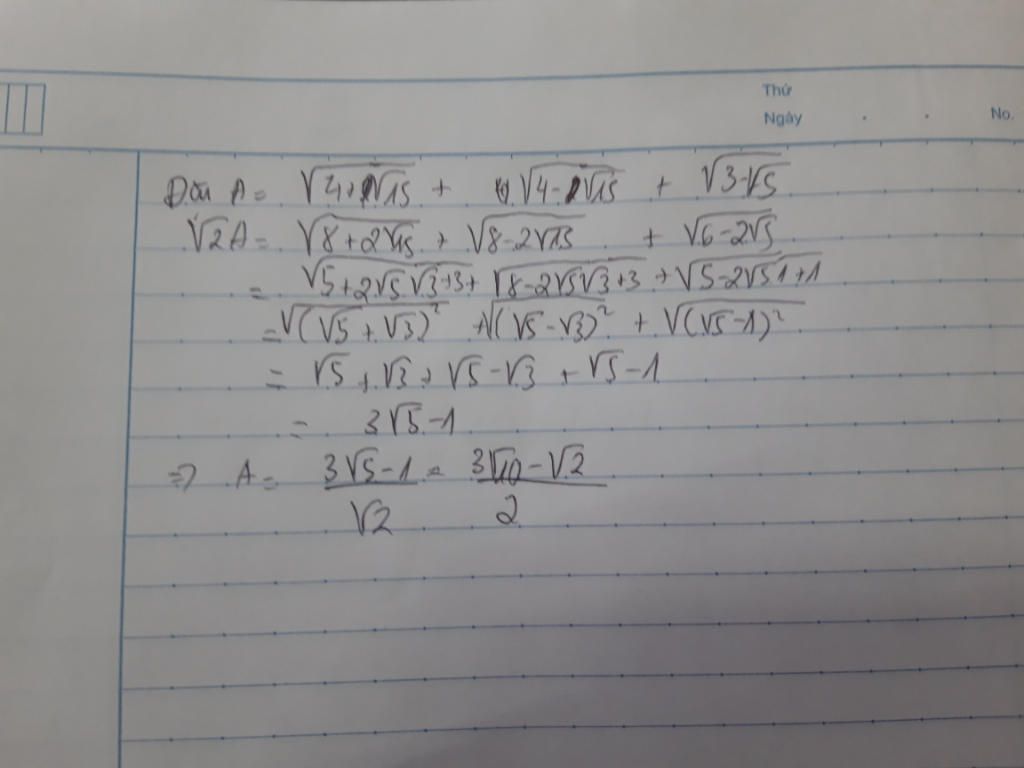 Thứ
Ngày . . No.
Đặt A = √(4+√15) + √(4-√15) + √(3-√5)
√2A = √(8+2√15) + √(8-2√15) + √(6-2√5)
= √(5+2√5√3+3) + √(8-2√5√3+3) + √(5-2√5 1+1)
= √((√5+√3)²) + √((√5-√3)²) + √((√5-1)²)
= √5 + √3 + √5 - √3 + √5 - 1
= 3√5 - 1
=> A = (3√5-1)/√2 = (3√10-√2)/2